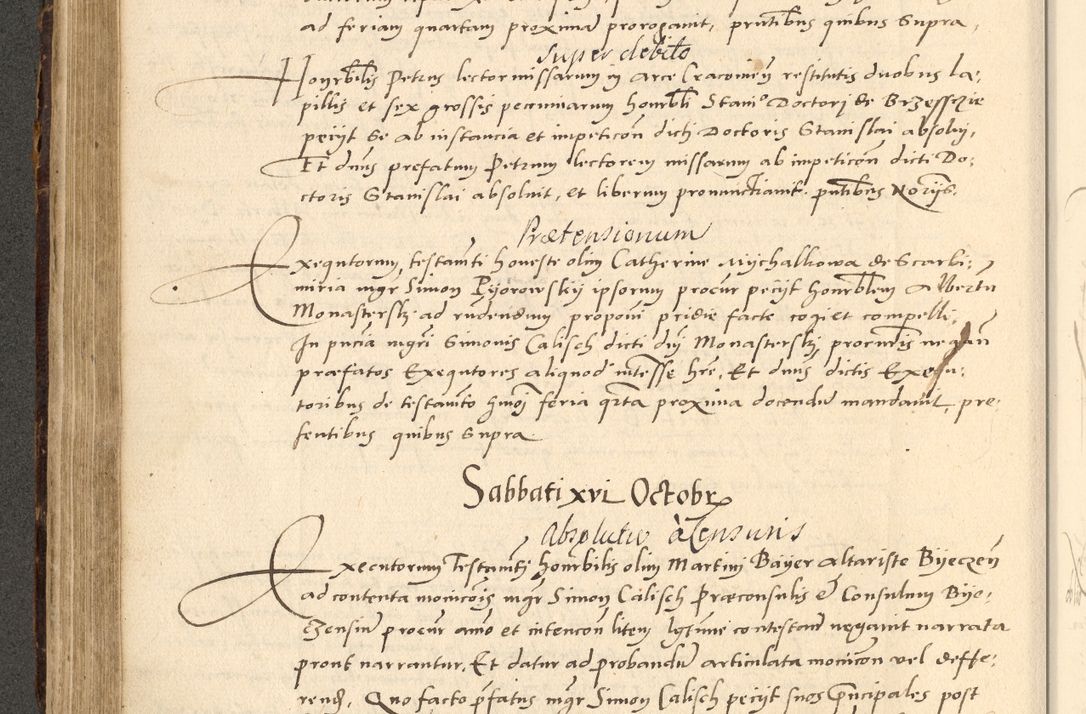 ad feriam quartam proximam prorogavit, pntibus quibus Supra,
Super debito
Honrbilis Petrus lector missarum in Arce Cracovien restitutis duobus la-
pillis et sex grossis pecuniarum honrbli Stanio Doctori de Brzessczie
petijt se ab instancia et impeticon dicti Doctoris Stanislai absolvi,
Et dnus prefatum Petrum lectorem missarum ab impeticon dicti Do-
ctoris Stanislai absolvit, et liberum pronunctiavit. pntibus Norijs.
Prætensionum
Exequtorum testamti honeste olim Catherine Mychalkowa de Scarbi-
miria mgr Simon Pijorowskij ipsorum procur petijt honrblem Albertu
Monasterskj ad rndendum proponi pridie facte cogi et compelli,
In pncia mgri Simonis Calisch dicti dnj Monasterskj procuris negan
præfatos Exequtores aliquod intesse hre, Et dnus dictis Exequ-
toribus de testamto hmoi feria qrta proxima docendu mandavit, pre-
sentibus quibus Supra
Sabbati xvi Octobr
Absolutio à Censuris
Executorum Testamti honrbilis olim Martini Bayer Altariste Byeczen
ad contenta monicois mgr Simon Calisch Præconsulis & Consulum Byo-
czensiu procur animo et intencon litem lgtime contestan negavit narrata
prout narrantur, Et datur ad probandu articulata monicon vel deffe-
rend, Quo facto pfatus mgr Simon Calisch petijt suos principales post